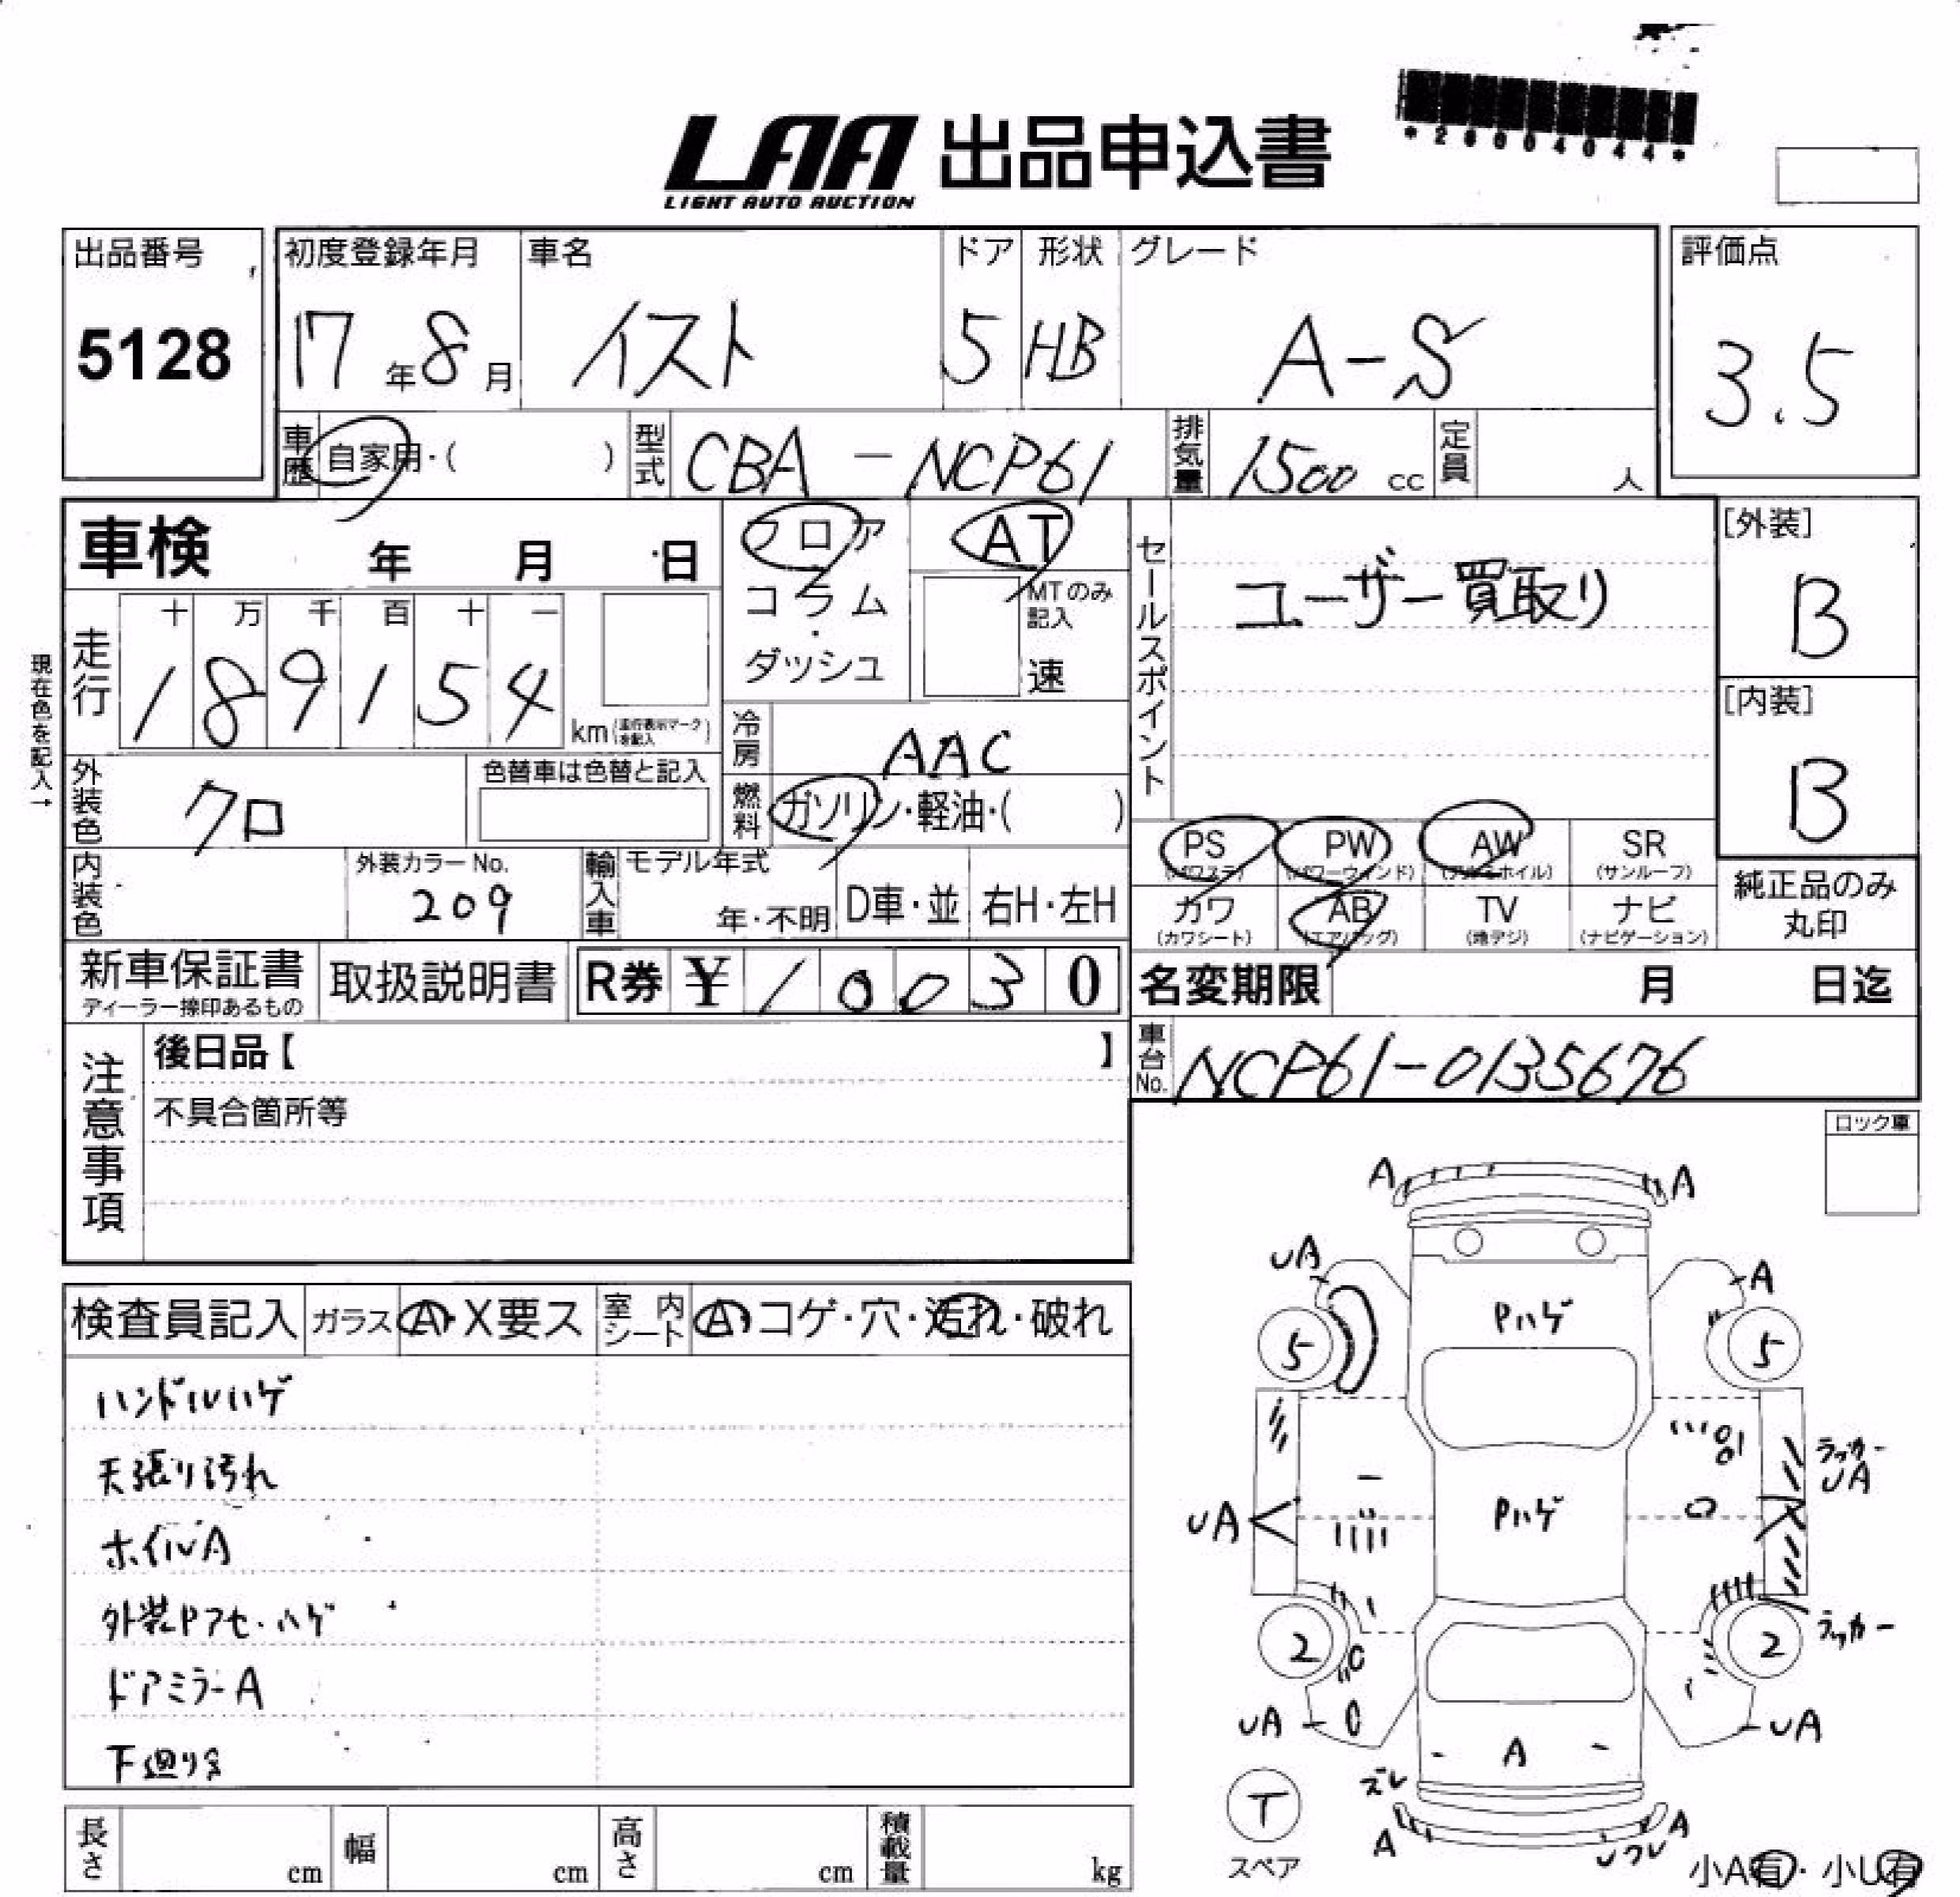 LAA 出品申込書
LIGHT AUTO AUCTION
*26004044*
出品番号
5128
初度登録年月
17年8月
車名
イスト
ドア
5
形状
HB
グレード
A-S
評価点
3.5
車歴
自家用・( )
型式
CBA-NCP61
排気量
1500 cc
定員
人
車検 年 月 日
フロア
コラム
・
ダッシュ
AT
MTのみ
記入
速
セールスポイント
ユーザー買取り
[外装]
B
[内装]
B
現在色を記入→
走行
十 万 千 百 十 一
1 8 9 1 5 4
km(走行表示マークを記入)
冷房
AAC
燃料
ガソリン・軽油・( )
外装色
クロ
色替車は色替と記入
内装色
外装カラーNo.
209
輸入車
モデル年式
年・不明
D車・並
右H・左H
PS
(パワステ)
PW
(パワーウィンド)
AW
(アルミホイル)
SR
(サンルーフ)
カワ
(カワシート)
AB
(エアバッグ)
TV
(地デジ)
ナビ
(ナビゲーション)
純正品のみ
丸印
新車保証書
ディーラー捺印あるもの
取扱説明書
R券 ¥ 1 0 0 3 0
名変期限 月 日迄
車台No.
NCP61-0135676
注意事項
後日品【 】
不具合箇所等
ロック車
検査員記入
ガラス
A・X要ス
室内シート
A・コゲ・穴・汚れ・破れ
ハンドルハゲ
天張り汚れ
ホイルA
外装Pアセ・ハゲ
ドアミラーA
下廻りS
A
A
UA
A
Pハゲ
5
5
ラッカー
UA
UA
Pハゲ
ラッカー
2
2
UA
UA
A
ズレ
T
スペア
A
A
ソフレ
小A有・小U有
長さ
cm
幅
cm
高さ
cm
積載量
kg